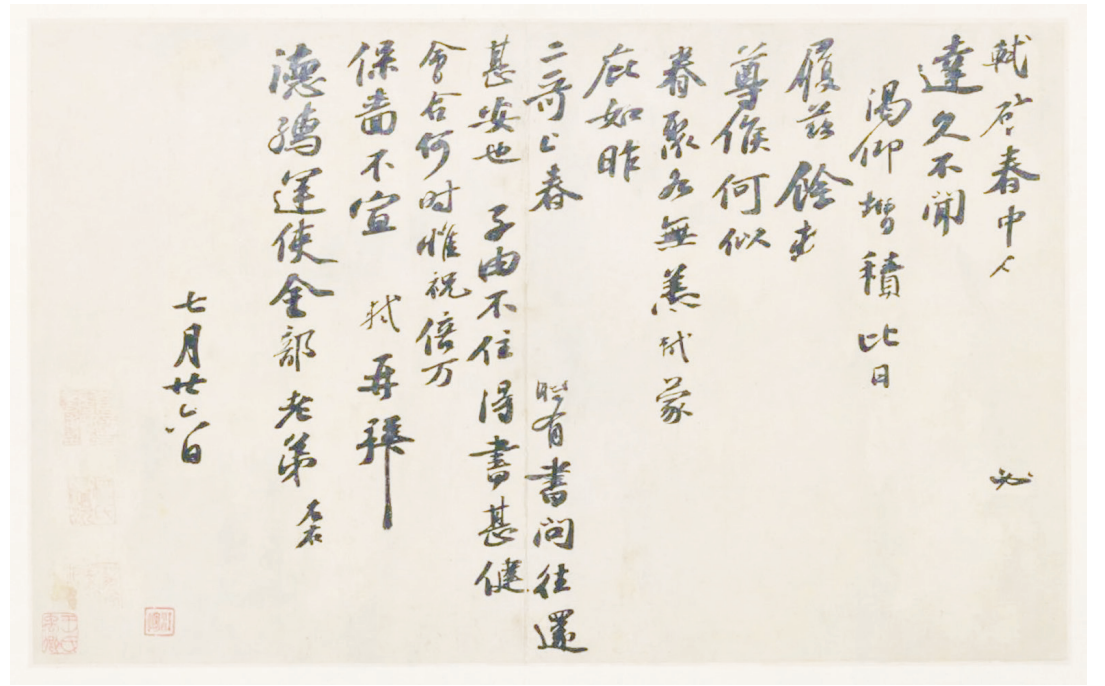 軾啓春中人必
達久不聞
渴仰增積比日
履茲餘
尊候何似
眷聚各無恙軾蒙
庇如昨
二哥上春時有書問往還
甚安也子由不住得書甚健
會合何时惟祝倍万
保嗇不宣軾再拜
德孺運使金部老弟左右
七月廿六日